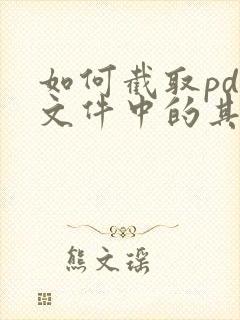 如何截取pd
文件中的其
熊文瑶